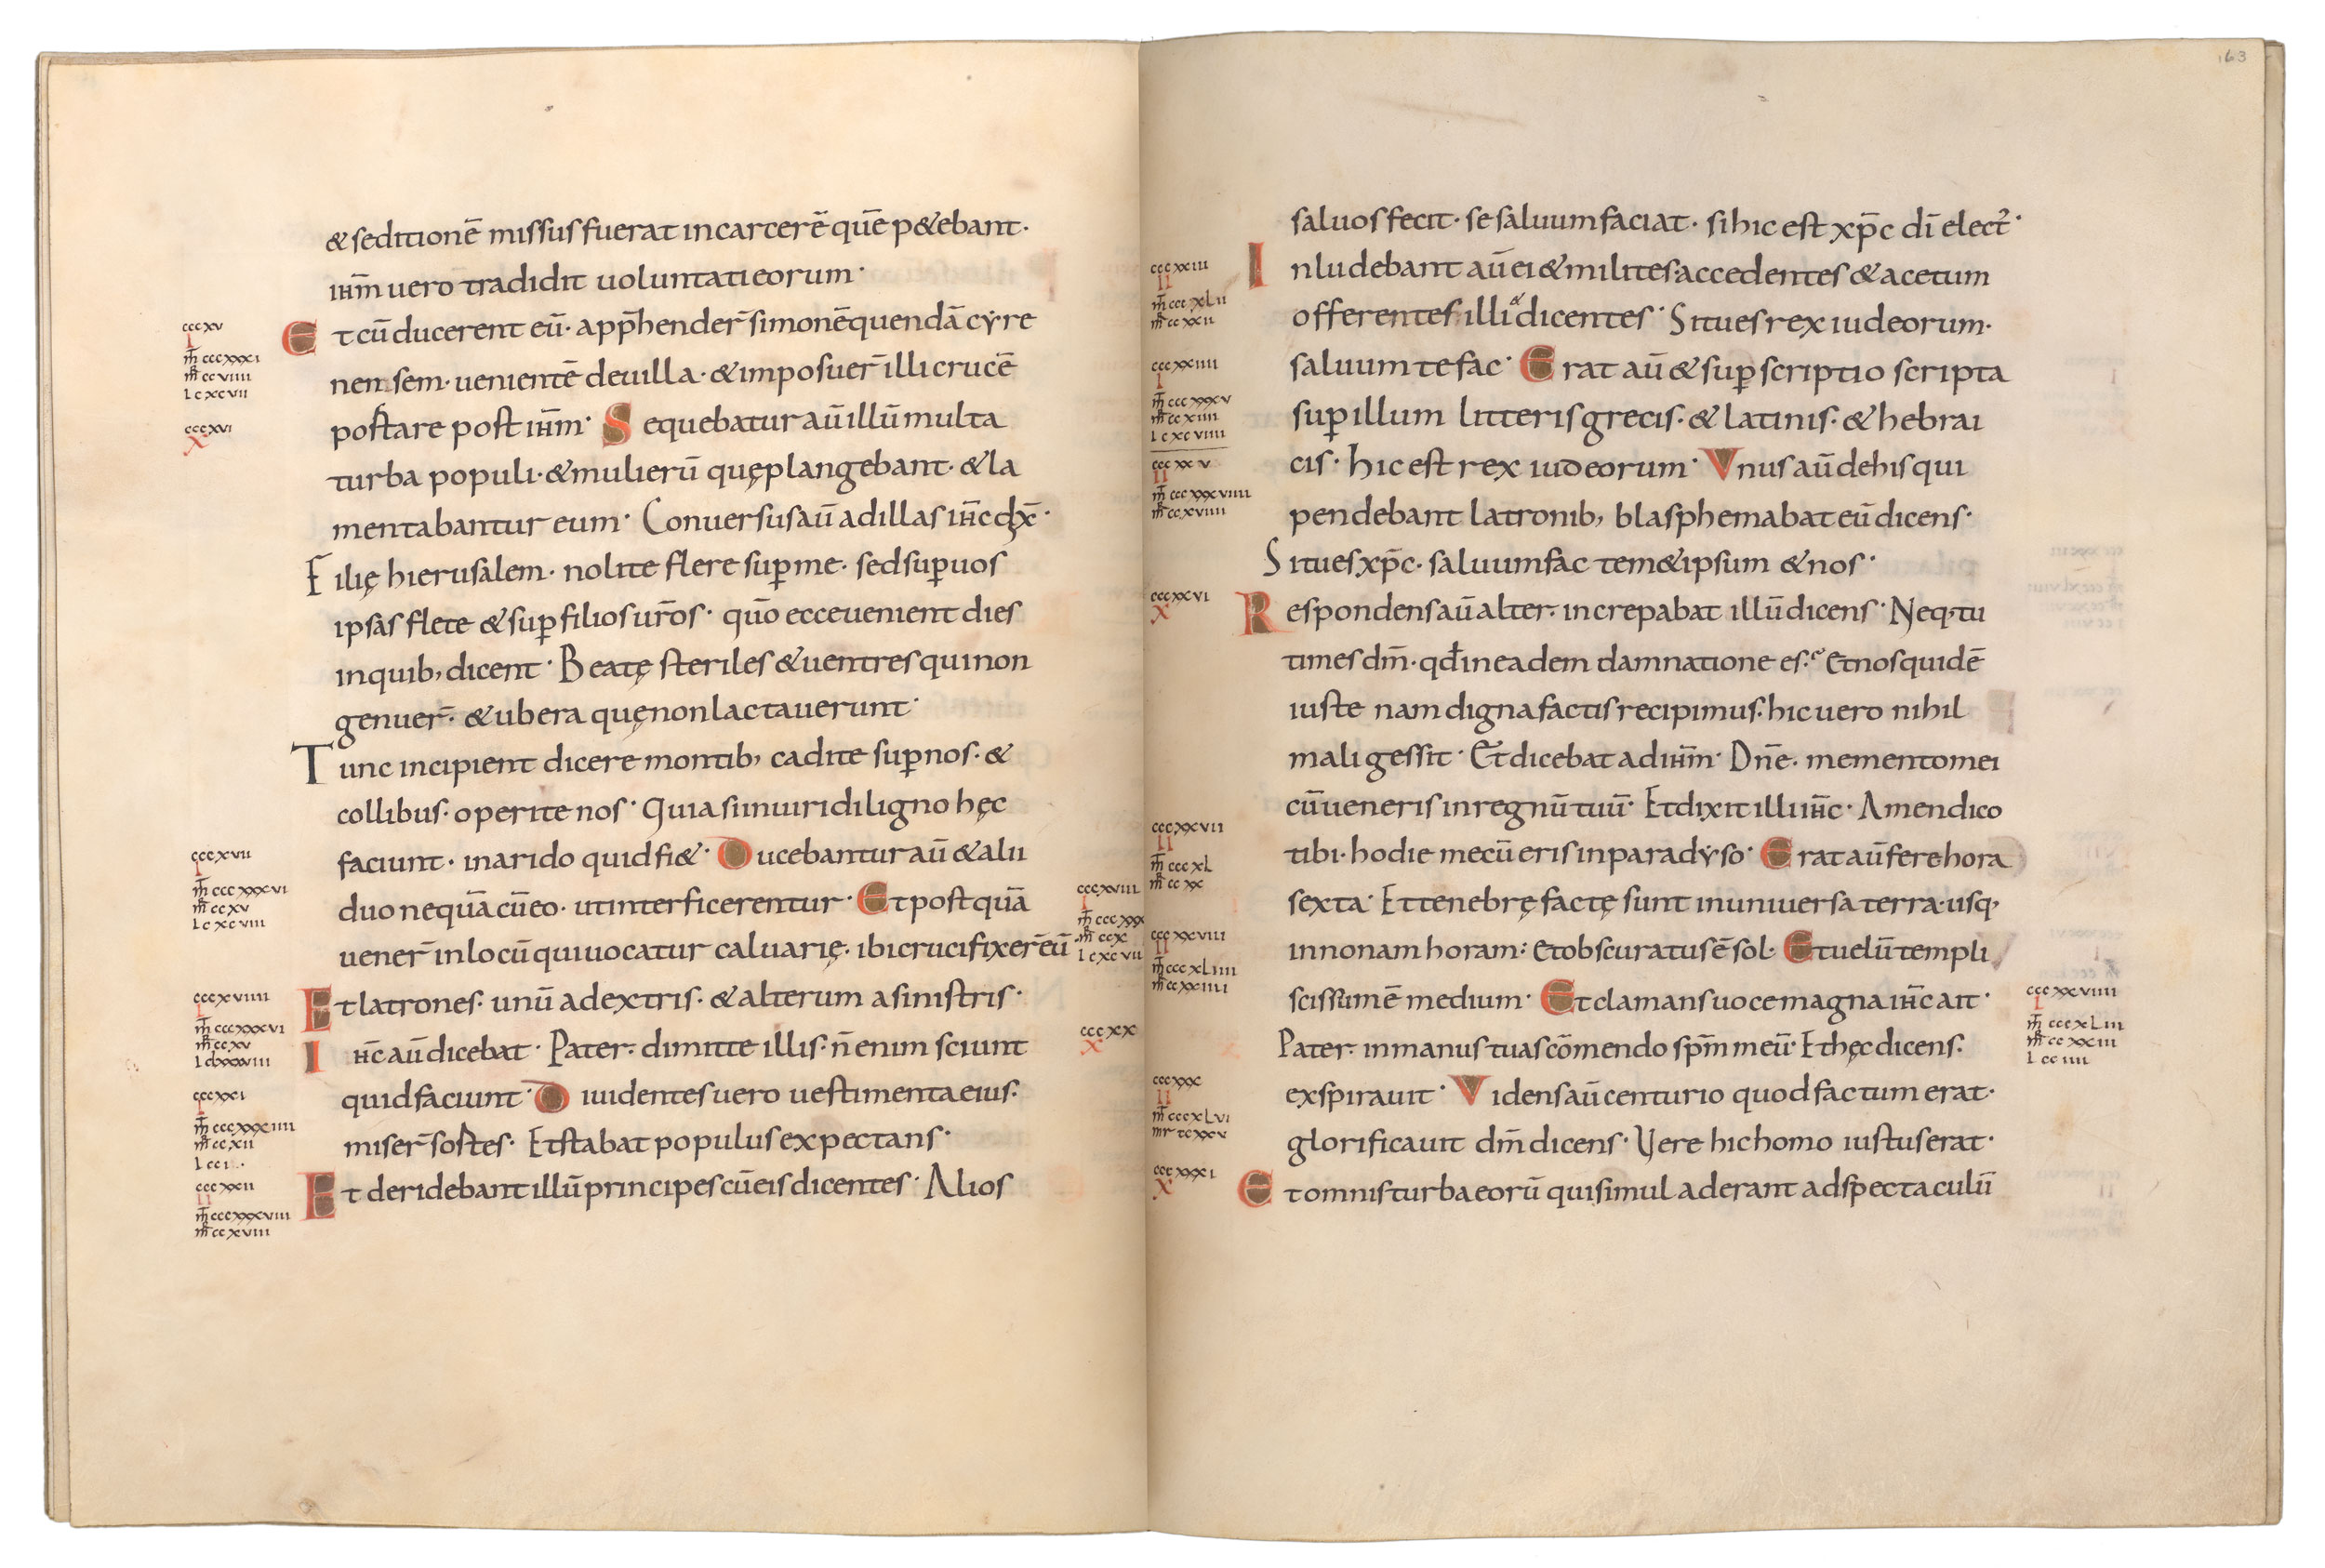 163
& seditionē missus fuerat in carcerē quē p&ebant·
ihm̄ uero tradidit uoluntati eorum·
cccxv
I
mt̄ cccxxxi
mr̄ ccviiii
I cxcvii
Et cū ducerent eū· app̄hender̄ simonē quendā cẏre
nensem· uenientē deuilla· & imposuer̄ illi crucē
cccxvi
X
portare post ihm̄· Sequebatur aū illū multa
turba populi· & mulierū quę plangebant· & la
mentabantur eum· Conuersus aū ad illas ihc̄ dx̄·
Filię hierusalem· nolite flere sup̄ me· sed sup̄ uos
ipsas flete & sup̄ filios ur̄os· quō ecce uenient dies
in quib; dicent· Beatę steriles & uentres qui non
genuer̄· & ubera quę non lactauerunt·
Tunc incipient dicere montib; cadite sup̄ nos· &
collibus· operite nos· Quia si in uiridi ligno hęc
cccxvii
I
mt̄ cccxxxvi
mr̄ ccxv
I cxcviii
faciunt· in arido quid fi&· Ducebantur aū & alii
duo nequā cū eo· ut interficerentur· Et postquā
cccxviii
I
mt̄ cccxxx
mr̄ ccx
I cxcvii
uener̄ in locū qui uocatur caluarię· ibi crucifixer̄ eū
cccxviiii
I
mt̄ cccxxxvi
mr̄ ccxv
Et latrones· unū a dextris· & alterum a sinistris·
cccxx
X
Ihc̄ aū dicebat· Pater· dimitte illis· n̄ enim sciunt
cccxxi
I
mt̄ cccxxxiiii
mr̄ ccxii
I cci
quid faciunt· Diuidentes uero uestimenta eius·
miser̄ sortes· Et stabat populus expectans·
cccxxii
II
mt̄ cccxxxviii
mr̄ ccxviii
Et deridebant illū principes cū eis dicentes· Alios
saluos fecit· se saluum faciat· si hic est xp̄c dī elect'·
cccxxiii
II
mt̄ cccxLii
mr̄ ccxxii
Inludebant aū ei & milites· accedentes & acetum
offerentes illi & dicentes· Si tu es rex iudeorum·
cccxxiiii
I
mt̄ cccxxxv
mr̄ ccxiiii
I cxcviiii
saluum te fac· Erat aū & sup̄scriptio scripta
sup̄ illum litteris grecis· & latinis· & hebrai
cccxxv
II
mt̄ cccxxxviiii
mr̄ ccxviiii
cis· hic est rex iudeorum· Vnus aū de his qui
pendebant latronib; blasphemabat eū dicens·
Si tu es xp̄c· saluum fac tem&ipsum & nos·
cccxxvi
X
Respondens aū alter· increpabat illū dicens· Neq; tu
times dm̄· qđ in eadem damnatione es· Et nos quidē
iuste nam digna factis recipimus· hic uero nihil
mali gessit· Et dicebat ad ihm̄· Dn̄e· memento mei
cū ueneris in regnū tuū· Et dixit illi ihc̄· Amen dico
cccxxvii
II
mt̄ cccxL
mr̄ ccxx
tibi· hodie mecū eris in paradẏso· Erat aū fere hora
sexta· Et tenebrę factę sunt in uniuersa terra· usq;
cccxxviii
II
mt̄ cccxLiiii
mr̄ ccxxiiii
in nonam horam: et obscuratus ē sol· Et uelū templi
cccxxviiii
I
mt̄ cccxLiii
mr̄ ccxxiii
I cciiii
scissum ē medium· Et clamans uoce magna ihc̄ ait·
Pater· in manus tuas cōmendo spm̄ meū· Et hęc dicens·
cccxxx
II
mt̄ cccxLvi
mr ccxxv
exspirauit· Videns aū centurio quod factum erat·
glorificauit dm̄ dicens· Vere hic homo iustus erat·
cccxxxi
X
Et omnis turba eorū qui simul aderant ad spectaculū